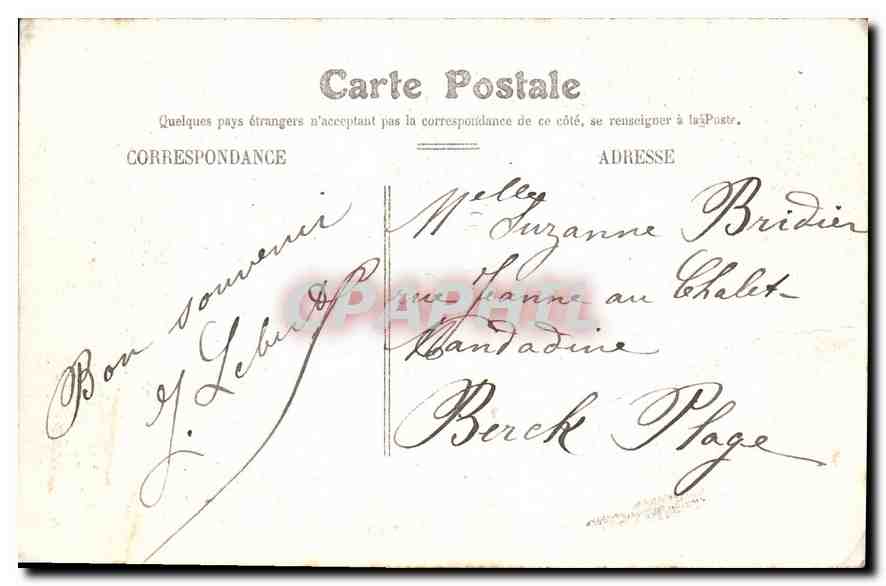 Carte Postale
Quelques pays étrangers n'acceptant pas la correspondance de ce côté, se renseigner à la Poste.
CORRESPONDANCE
ADRESSE
Bon souvenir
J.
Melle Suzanne Bridier
rue Jeanne au Chalet
Berck Plage
CPAPHIL